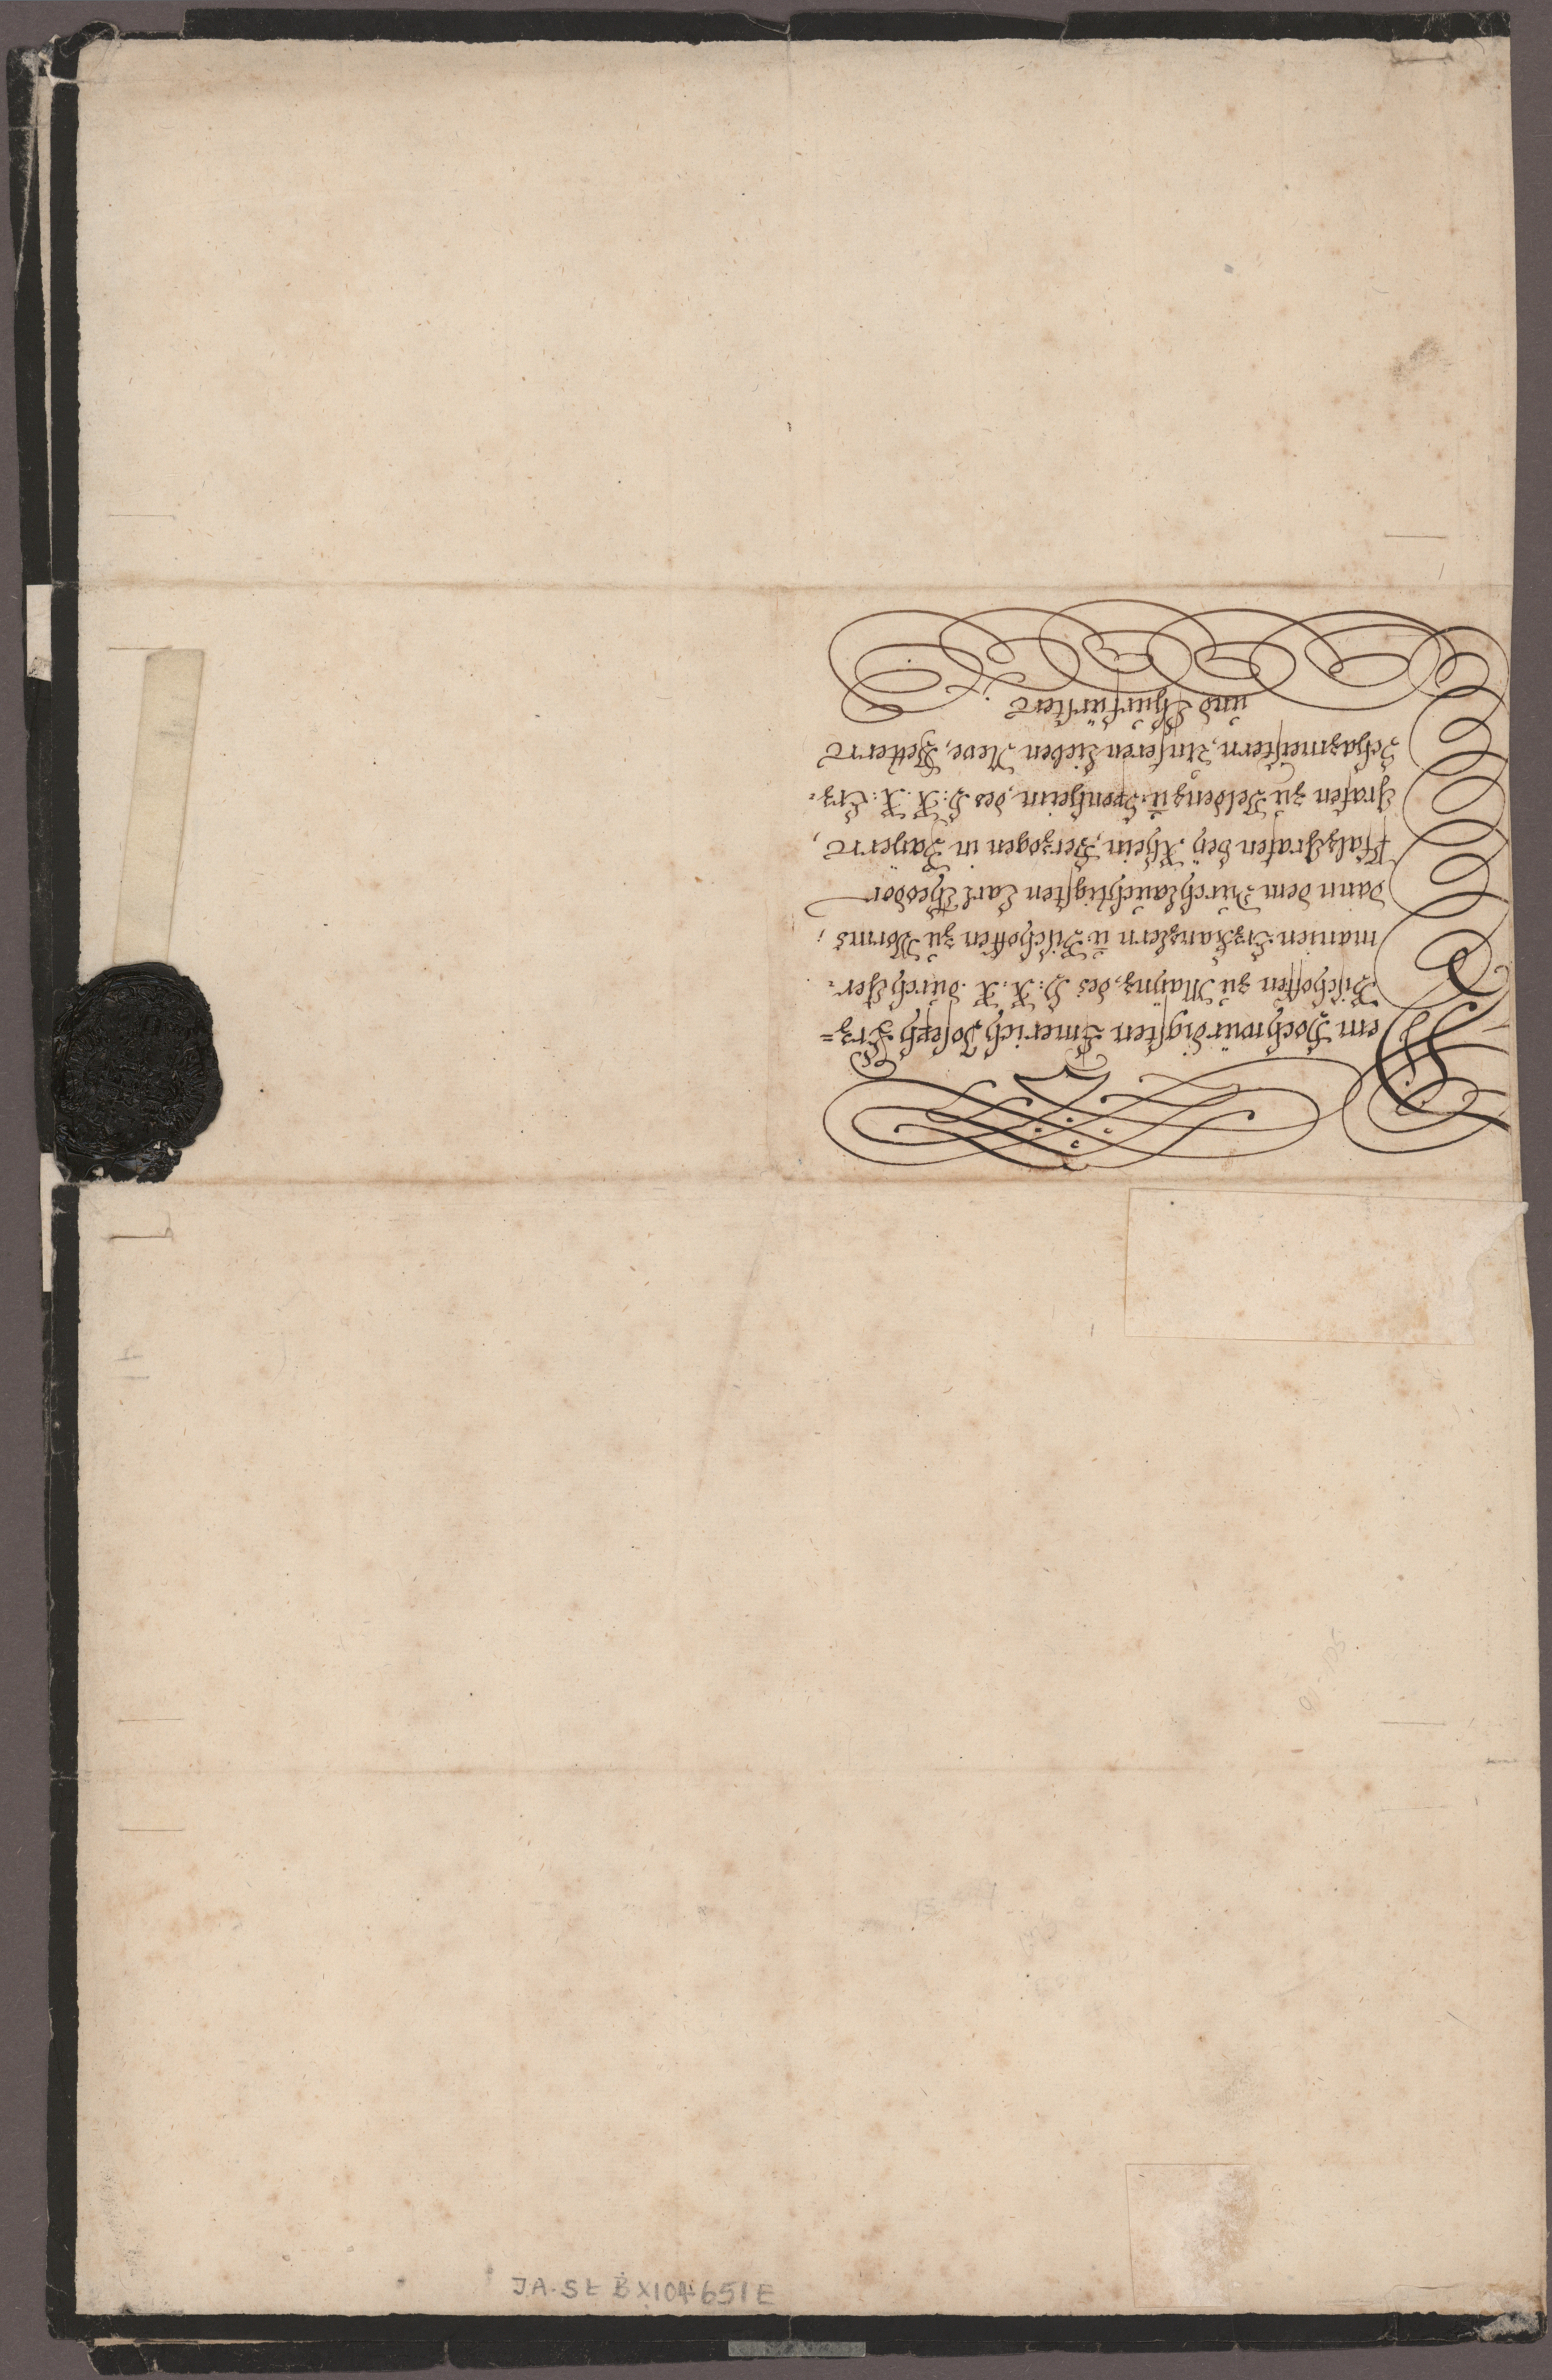 Dem Hochwürdigsten Emerich Joseph Erz=
Bischoffen zu Maÿnz, des H: R: R. durch Ger=
manien ErzKanzlern ū. Bischoffen zu Worms;
dann dem Durchlauchtigsten Carl Theodor
PfalzGrafen beÿ Rhein, Herzogen in Baÿern,
Grafen zu Veldenz ū. Sponheim, des H: R: R: Erz=
Schazmeistern, Unseren Lieben Neve, Vettern
und Churfürsten.
JA-St B X104651E